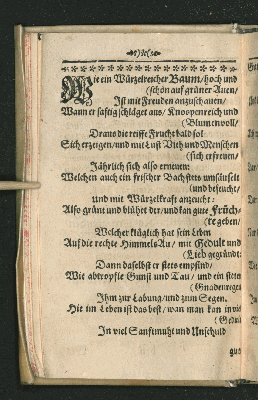 Wie ein Würzelreicher Baum/ hoch und
(schön auf grüner Auen/
Ist mit Freuden anzuschauen/
Wann er saftig schläget aus/ Knospenreich und
(Blumenvoll/
Draus die reiffe Frucht bald sol
Sich erzeigen/ und mit Lust Vieh und Menschen
(sich erfreuen/
Jährlich sich also erneuen:
Welchen auch ein frischer Bach stets umsäuselt
(und befeucht/
und mit Würzelkraft anzeucht:
Also grünt und blühet der/ und kan gute Früch-
(te geben/
Welcher kläglich hat sein Leben
Auf die rechte Himmels Au/ mit Gedult und
(Lieb gegründt:
Dann daselbst er stets empfind/
Wie abtropfle Gunst und Tau/ und ein steter
(Gnadenregen
Ihm zur Labung/ und zum Segen.
Hie im Leben ist das best/ wan man kan in viel
(Gedult
In viel Sanftmuht und Unschuld